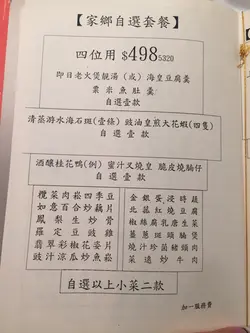 【家鄉自選套餐】
四位用 $498 5320
即日老火煲靚湯 (或) 海皇豆腐羹
粟米魚肚羹
自選壹款
清蒸游水海石斑(壹條) 豉油皇煎大花蝦(四隻)
自選壹款
酒釀桂花鴨(例) 蜜汁叉燒皇 脆皮燒腩仔
自選壹款
欖菜肉崧四季豆 金銀蛋浸時蔬
如意百合炒藕片 北菇紅燒豆腐
鳳梨生炒骨 椒絲腐乳唐生菜
羅定豆豉雞 薑蔥斑頭腩煲
翡翠彩椒花姿片 燒汁珍菌豬頸肉
豉汁涼瓜炒魚崧 菜遠炒牛肉
自選以上小菜二款
加一服務費